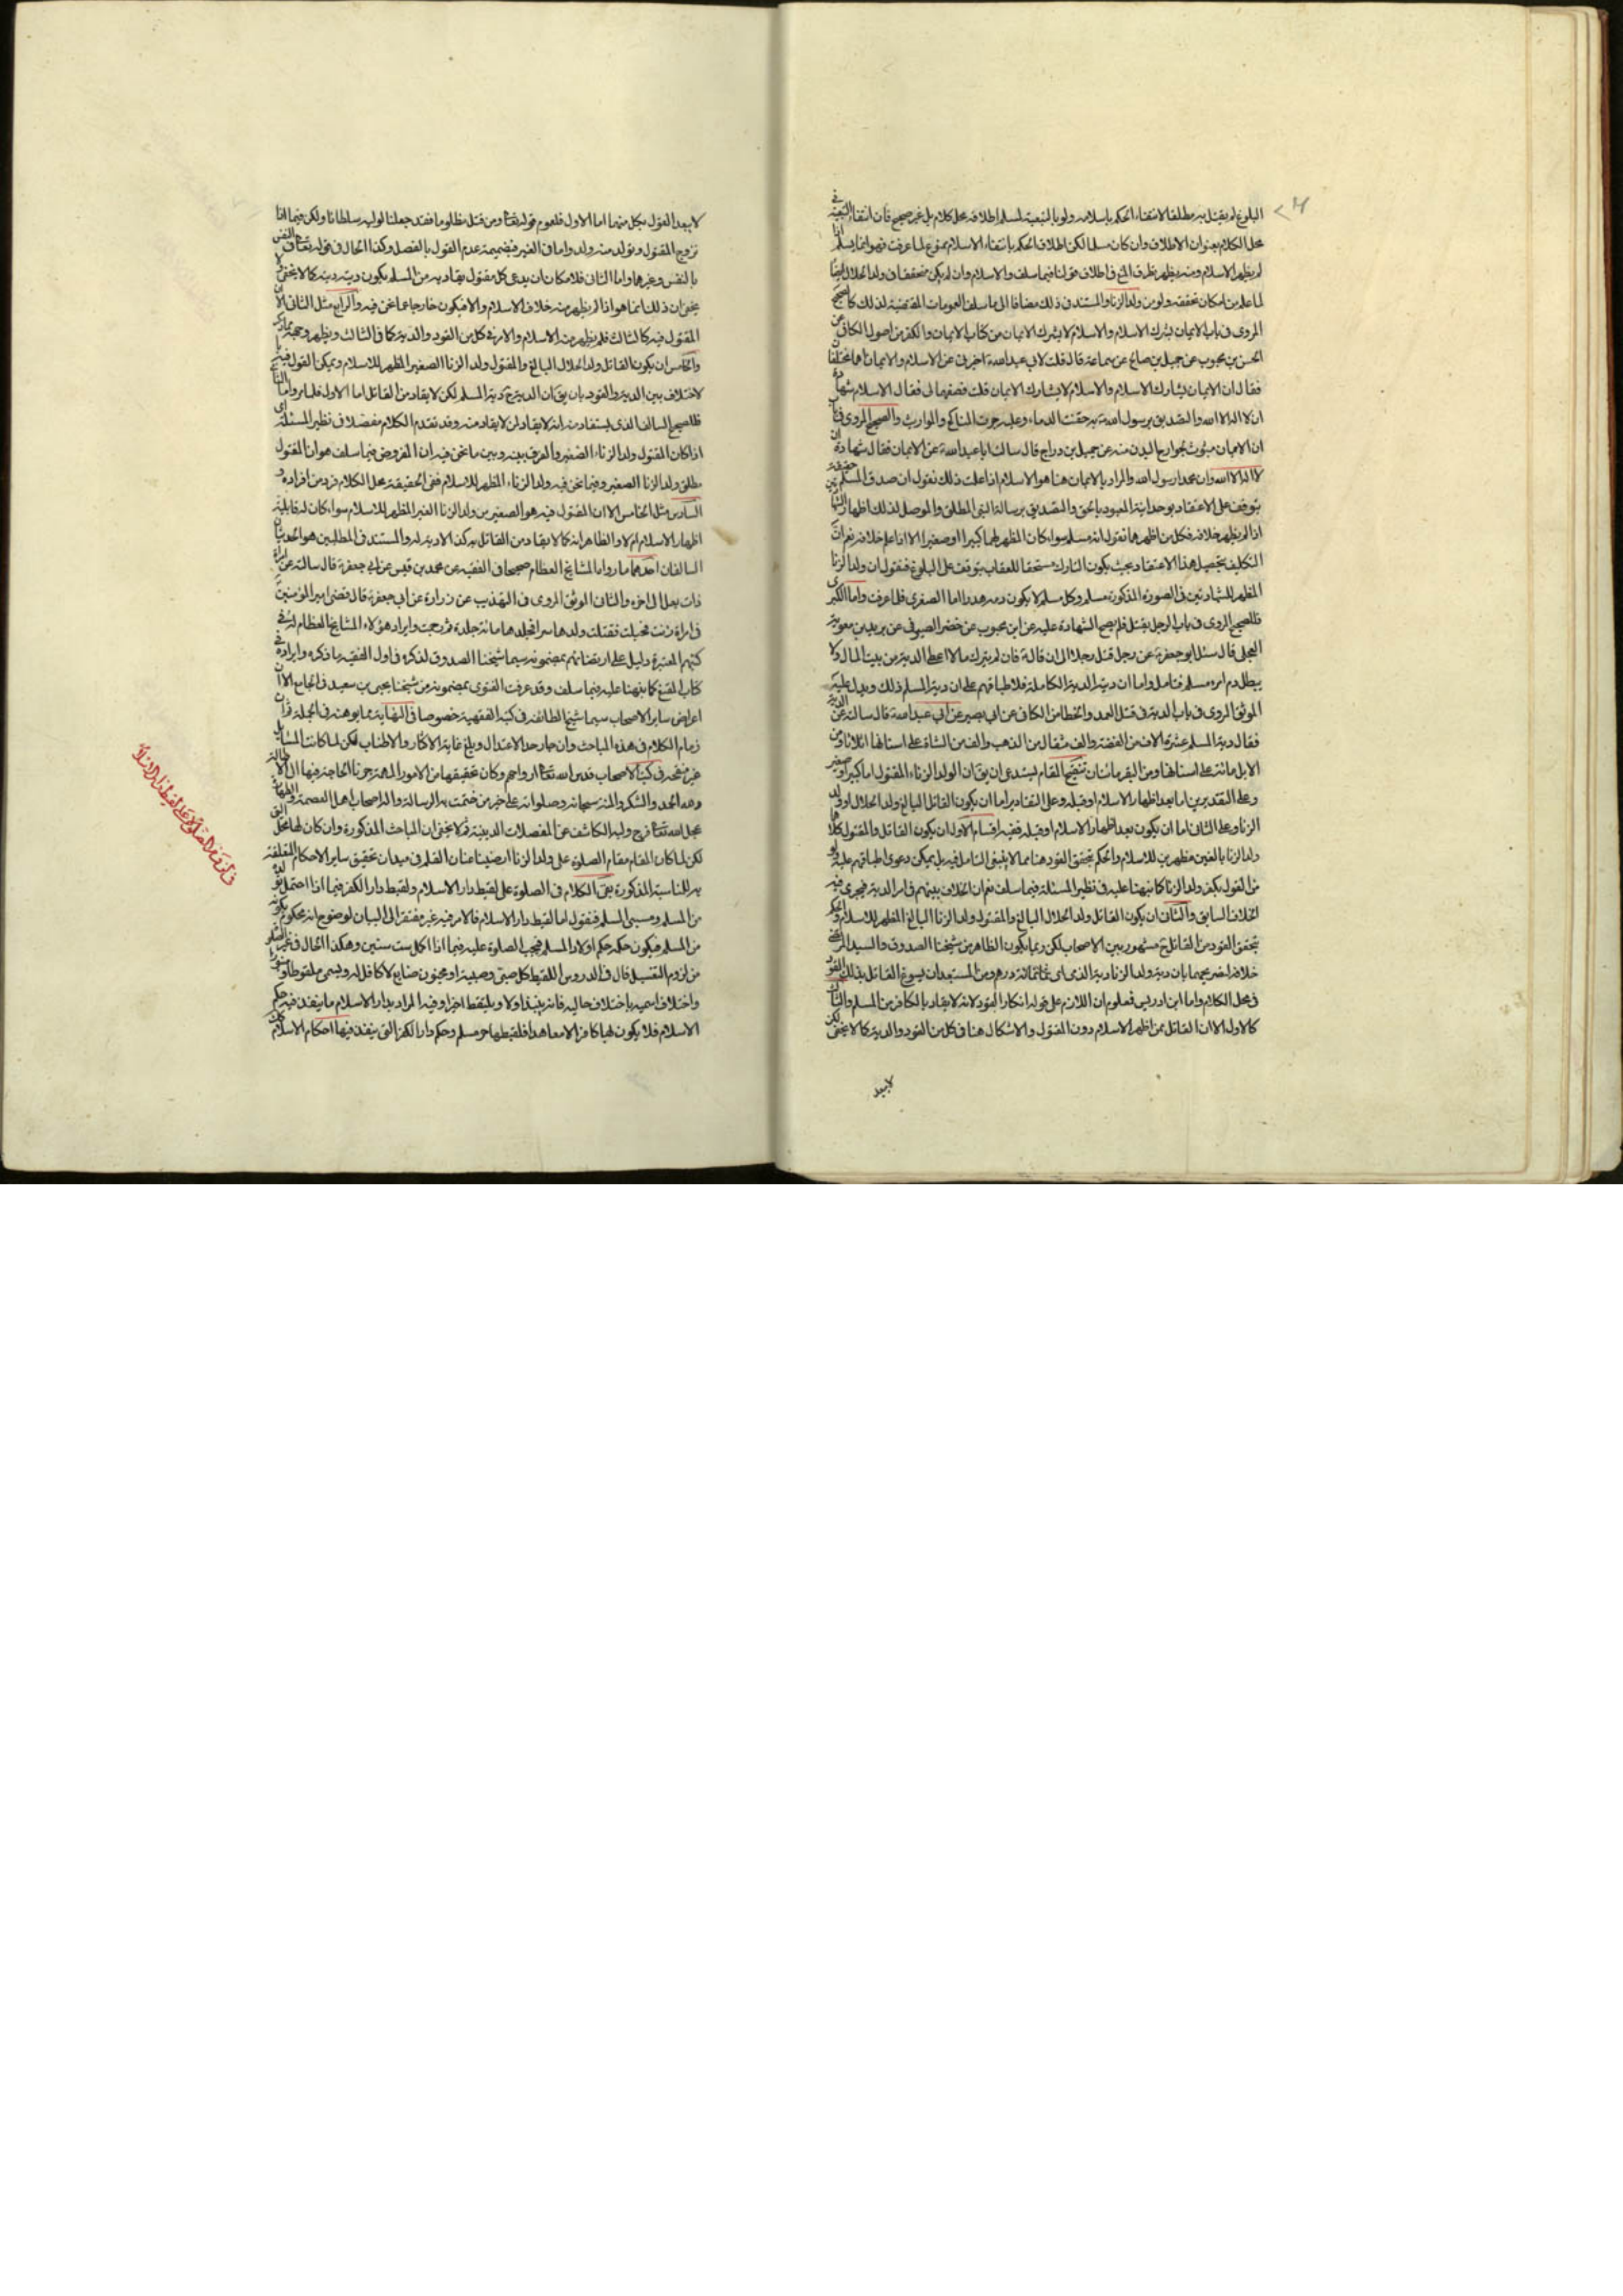 البلوغ لم يقتل به مطلقا لانتفاء الحكم باسلامه ولو بالتبعية لمسلم اطلاقه محل كلام بل غير صحيح فان انتفاء التبعية في
محل الكلام بعنوان الاطلاق وان كان مسلما لكن اطلاق الحكم بانتفاء الاسلام ممنوع لما عرفت فهو انما يسلم اذا
لم يظهر الاسلام ومنه يظهر تطرق المنع في اطلاق قولنا فيما سلف والاسلام وان لم يكن متحققا في ولد الحلال ايضا
لما علم من امكان تحققه ولو من ولد الزنا والمستند في ذلك مضافا الى ما سلف العمومات المقتضية لذلك كالصحيح
المروى في باب الايمان يشرك الاسلام والاسلام لا يشرك الايمان من كتاب الايمان والكفر من اصول الكافى عن
الحسن بن محبوب عن جميل بن صالح عن سماعة قال قلت لابي عبد الله ع اخبرني عن الاسلام والايمان اهما مختلفان
فقال ان الايمان يشارك الاسلام والاسلام لا يشارك الايمان قلت فصفهما لى فقال الاسلام شهادة
ان لا اله الا الله والتصديق برسول الله ص به حقنت الدماء وعليه جرت المناكح والمواريث والصحيح المروى في باب
ان الايمان مبثوث بجوارح البدن منه عن جميل بن دراج قال سالت ابا عبد الله ع عن الايمان فقال شهادة ان
لا اله الا الله وان محمدا رسول الله والمراد بالايمان هنا هو الاسلام اذا علمت ذلك نقول ان صدق المسلم حقيقة
يتوقف على الاعتقاد بوحدانية المعبود بالحق والتصديق برسالة النبى المطلق والموصل لذلك اظهار الشهادتين
اذا لم يظهر خلافه فكل من اظهرهما نقول انه مسلم سواء كان المظهر لهما كبيرا او صغيرا الا اذا علم خلافه نعم ان
التكليف بتحصيل هذا الاعتقاد بحيث يكون التارك مستحقا للعقاب يتوقف على البلوغ فنقول ان ولد الزنا
المظهر للشهادتين في الصورة المذكورة مسلم وكل مسلم لا يكون دمه هدرا اما الصغرى فلما عرفت واما الكبرى
فللصحيح المروى في باب الرجل يقتل فلم يصح الشهادة عليه عن ابن محبوب عن خضر الصيرفى عن بريد بن معوية
العجلى قال سئل ابو جعفر ع عن رجل قتل رجلا الى ان قال ع فان لم يترك مالا اعطى الدية من بيت المال ولا
يبطل دم امرء مسلم فتامل واما ان ديته الدية الكاملة فلاطباقهم على ان دية المسلم ذلك ويدل عليه
الموثق المروى في باب الدية في قتل العمد والخطا من الكافى عن ابى بصير عن ابي عبد الله ع قال سالته عن الدية
فقال دية المسلم عشرة الاف من الفضة والف مثقال من الذهب والف من الشاة على اسنانها اثلاثا ومن
الابل مائة على اسنانها ومن البقر مائتان تنقيح المقام يستدعى ان يقال ان الولد الزناء المقتول اما كبير او صغير
وعلى التقديرين اما بعد اظهار الاسلام او قبله وعلى التقادير اما ان يكون القاتل البالغ ولد الحلال او ولد
الزنا وعلى الثانى اما ان يكون بعد اظهار الاسلام او قبله ففيه اقسام الاول ان يكون القاتل والمقتول كلاهما
ولد الزنا بالغين مظهرين للاسلام والحكم بتحقق القود هنا مما لا ينبغى التامل فيه بل يمكن دعوى اطباقهم عليه ولو
من القول بكفر ولد الزنا كما نبهنا عليه في نظير المسئلة فيما سلف نعم ان الخلاف بينهم في امر الدية فيجرى فيه
الخلاف السابق والثاني ان يكون القاتل ولد الحلال البالغ والمقتول ولد الزنا البالغ المظهر للاسلام والحكم
بتحقق القود من القاتل ح مشهور بين الاصحاب لكن ربما يكون الظاهر من شيخنا الصدوق والسيد المرتضى
خلافه لتصريحهما بان دية ولد الزنا دية الذمى اى ثمانمائة درهم ومن المستبعد ان يسوغ القاتل بذلك القود
في محل الكلام واما ابن ادريس فمعلوم ان اللازم على قوله انكار القود لانه لا يقاد بالكافر من المسلم والثالث
كالاول الا ان القاتل ممن اظهر الاسلام دون المقتول والاشكال هنا في كل من القود والدية كما لا يخفى لكن
لا يبعد
لا يبعد القول بكل منهما اما الاول فلعموم قوله تعالى ومن قتل مظلوما فقد جعلنا لوليه سلطانا ولكن فيما اذا
تزوج المقتول وتولد منه ولد واما في الغير فبضميمة عدم القول بالفصل وكذا الحال في قوله تعالى النفس
بالنفس وغيرها واما الثانى فلامكان ان يدعى كل مقتول يقاد به من المسلم يكون ديته دية كما لا يخفى
يخفى ان ذلك انما هو اذا لم يظهر منه خلاف الاسلام والا فيكون خارجا عما نحن فيه والرابع مثل الثانى الا ان
المقتول فيه كالثالث فلم يظهر منه الاسلام والامر في كل من القود والدية كما في الثالث ويظهر وجهه مما ذكر
والخامس ان يكون القاتل ولد الحلال البالغ والمقتول ولد الزنا الصغير المظهر للاسلام ويمكن القول فيه
لاختلاف بين الدية والقود بان يقال ان الدية ح كدية المسلم لكن لا يقاد من القاتل اما الاول فلما مر واما الثانى
فللصحيح السالف الذى يستفاد منه انه لا يقاد لمن لا يقاد منه وقد تقدم الكلام مفصلا في نظير المسئلة اى
اذا كان المقتول ولد الزناء الصغير والفرق بينه وبين ما نحن فيه ان المفروض فيما سلف هو ان المقتول
مطلق ولد الزنا الصغير وفيما نحن فيه ولد الزناء المظهر للاسلام ففى الحقيقة محل الكلام فرد من افراده و
السادس مثل الخامس الا ان المقتول فيه هو الصغير من ولد الزنا الغير المظهر للاسلام سواء كان له قابلية
اظهار الاسلام ام لا والظاهر انه كما لا يقاد من القاتل به كذا لا دية له والمستند في المطلبين هو الحديثان
السالفان احدهما ما رواه المشايخ العظام صحيحا في الفقيه عن محمد بن قيس عن ابي جعفر ع قال سالته عن امراة
ذات بعل الى اخره والثانى الموثق المروى في التهذيب عن زرارة عن ابى جعفر ع قال قضى امير المؤمنين
في امراة زنت فحبلت فقتلت ولدها سرا فجلدها مائة جلدة ثم رجمت وايراد هؤلاء المشايخ العظام له في
كتبهم المعتبرة دليل على ارتضائهم بمضمونه سيما شيخنا الصدوق لذكره في اول الفقيه ما ذكره وايراده في
كتاب المقنع كما نبهنا عليه فيما سلف وقد عرفت الفتوى بمضمونه من شيخنا يحيى بن سعيد في الجامع الا ان
اعراض ساير الاصحاب سيما شيخ الطائفة في كتبه الفقهية خصوصا في النهاية مما يوهنه في الجملة ثم ان
زمام الكلام في هذه المباحث وان جاز حد الاعتدال وبلغ غاية الاكثار والاطناب لكن لما كانت المسائل
غير منقحة في كتب الاصحاب قدس الله تعالى ارواحهم وكان تحقيقها من الامور المهمة رجونا الحاجة فيها الى الاطالة
وله الحمد والشكر والمنة سبحانه وصلواته على خير من ختمت به الرسالة واله اصحاب اهل العصمة والطهارة
عجل الله تعالى فرج وليه الكاشف عن المعضلات الدينية ثم لا يخفى ان المباحث المذكورة وان كان لها محل
لكن لما كان المقام مقام الصلوة على ولد الزنا ارخينا عنان القلم في ميدان تحقيق ساير الاحكام المتعلقة
به للمناسبة المذكورة بقى الكلام في الصلوة على لقيط دار الاسلام ولقيط دار الكفر فيما اذا احتمل تولده
من المسلم ومسبى المسلم فنقول اما لقيط دار الاسلام فالامر فيه غير مفتقر الى البيان لوضوح انه محكوم بكونه
من المسلم فيكون حكمه حكم اولاد المسلم فيجب الصلوة عليه فيما اذا اكمل ست سنين وهكذا الحال في غير الصلوة
من لزوم التغسيل قال في الدروس اللقيط كل صبى وصبية او مجنون ضايع لا كافل له ويسمى ملقوطا ومنبوذا
واختلاف اسميه باختلاف حاليه فانه ينبذ اولا ويلتقط اخرا وفيه المراد بدار الاسلام ما ينفذ فيه حكم
الاسلام فلا يكون بها كافر الا معاهدا فلقيطها حر مسلم وحكم دار الكفر التى ينفذ فيها احكام الاسلام